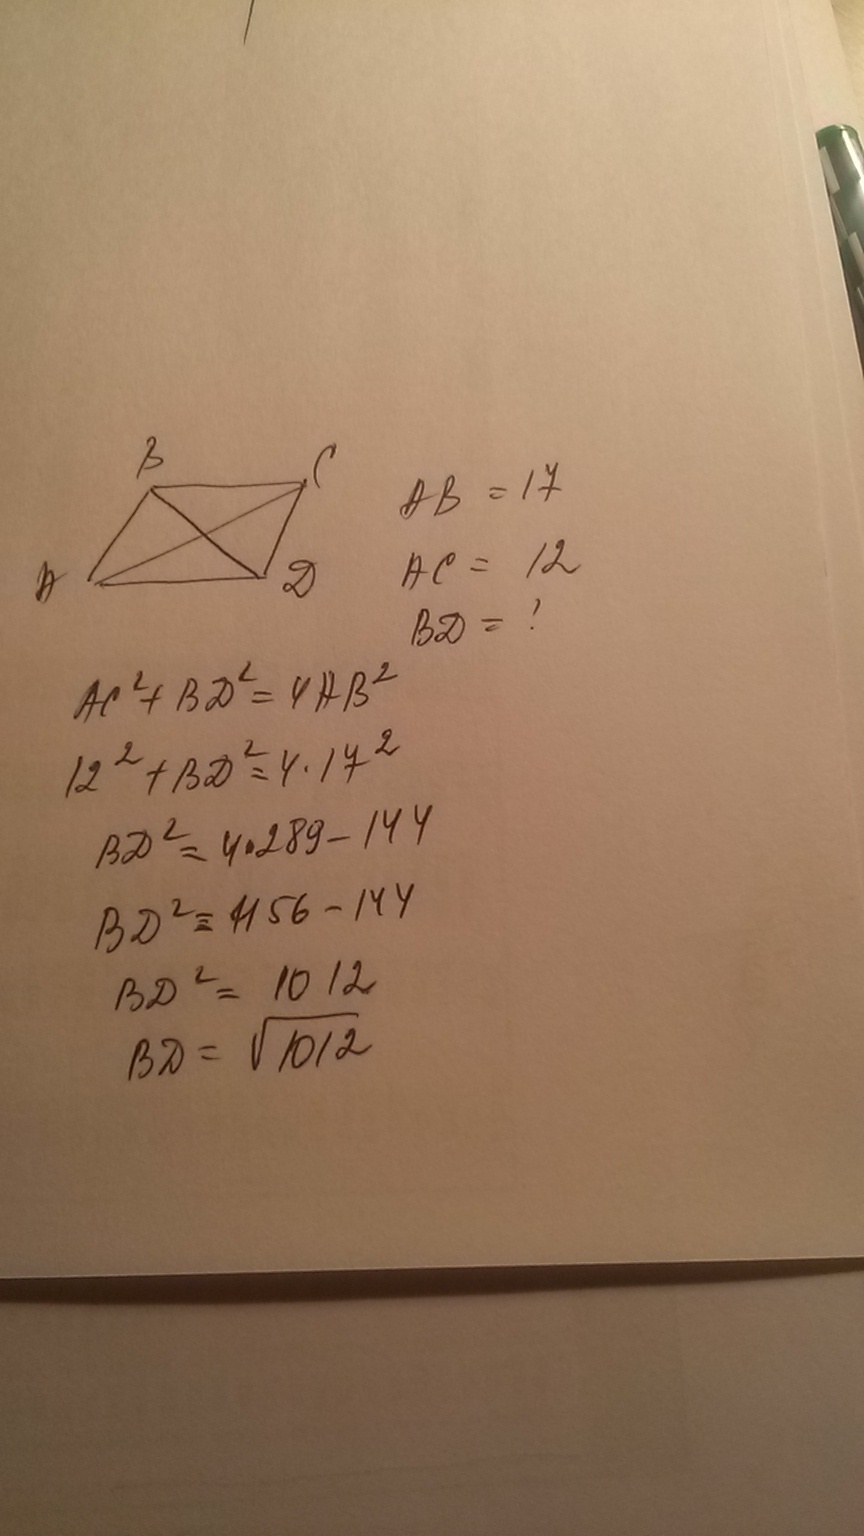 B
C
A
D
AB = 17
AC = 12
BD = ?
AC² + BD² = 4AB²
12² + BD² = 4·17²
BD² = 4·289 - 144
BD² = 1156 - 144
BD² = 1012
BD = √1012